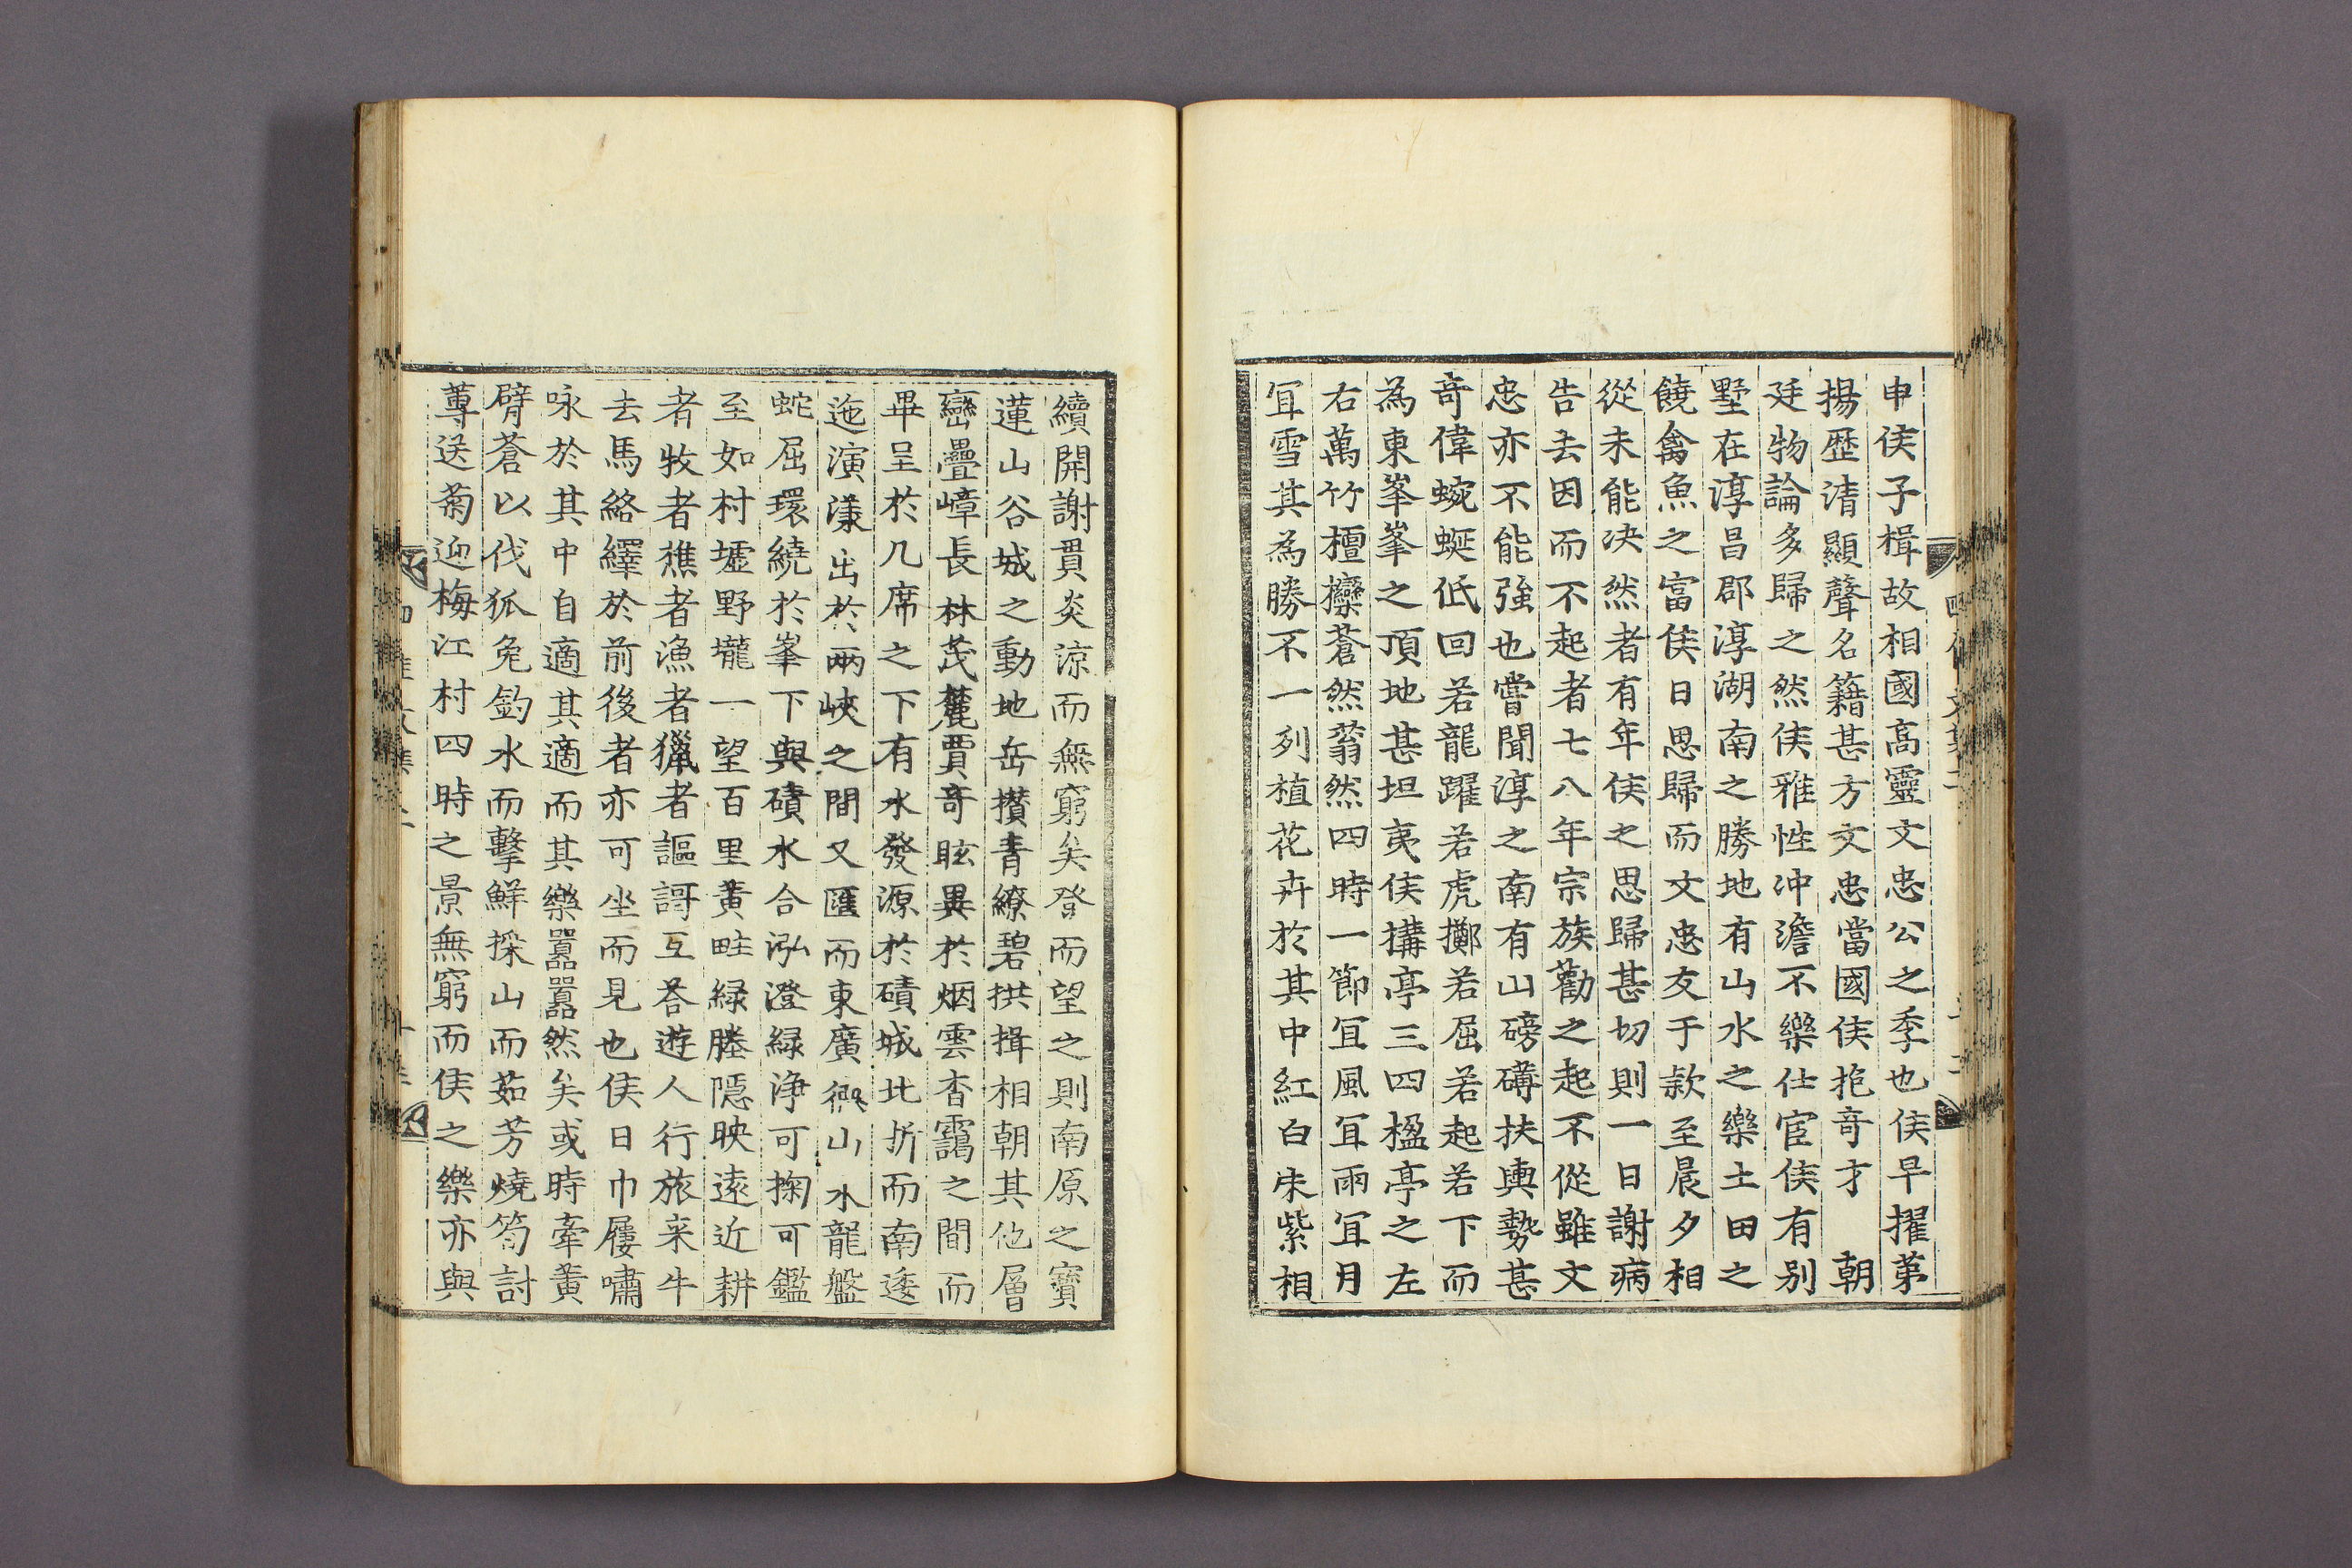 申侯子楫故相國高靈文忠公之季也侯早擢第
揚歷清顯聲名籍甚方文忠當國侯抱奇才　朝
廷物論多歸之然侯雅性冲澹不樂仕宦侯有别
墅在淳昌郡淳湖南之勝地有山水之樂土田之
饒禽魚之富侯日思歸而文忠友于款至晨夕相
從未能决然者有年侯之思歸甚切則一日謝病
告去因而不起者七八年宗族勸之起不從雖文
忠亦不能強也嘗聞淳之南有山磅礴扶輿勢甚
奇偉蜿蜒低回若龍躍若虎擲若屈若起若下而
為東峯峯之頂地甚坦夷侯搆亭三四楹亭之左
右萬竹檀欒蒼然蓊然四時一節冝風冝雨冝月
冝雪其為勝不一列植花卉於其中紅白朱紫相
續開謝貫炎涼而無窮矣登而望之則南原之寶
蓮山谷城之動地岳攅青繚碧拱揖相朝其他層
巒疊嶂長林茂麓賈奇眩異於烟雲杳靄之間而
畢呈於几席之下有水發源於磧城北折而南逶
迤演漾出於兩峽之間又匯而東廣㒇山水龍盤
蛇屈環繞於峯下與磧水合泓澄緑浄可掬可鑑
至如村墟野壠一望百里黄畦緑塍隱映遠近耕
者牧者樵者漁者獵者謳謌互荅遊人行旅来牛
去馬絡繹於前後者亦可坐而見也侯日巾屨嘯
咏於其中自適其適而其樂囂囂然矣或時牽黄
臂蒼以伐狐兔釣水而擊鮮採山而茹芳燒筍討
蓴送菊迎梅江村四時之景無窮而侯之樂亦與